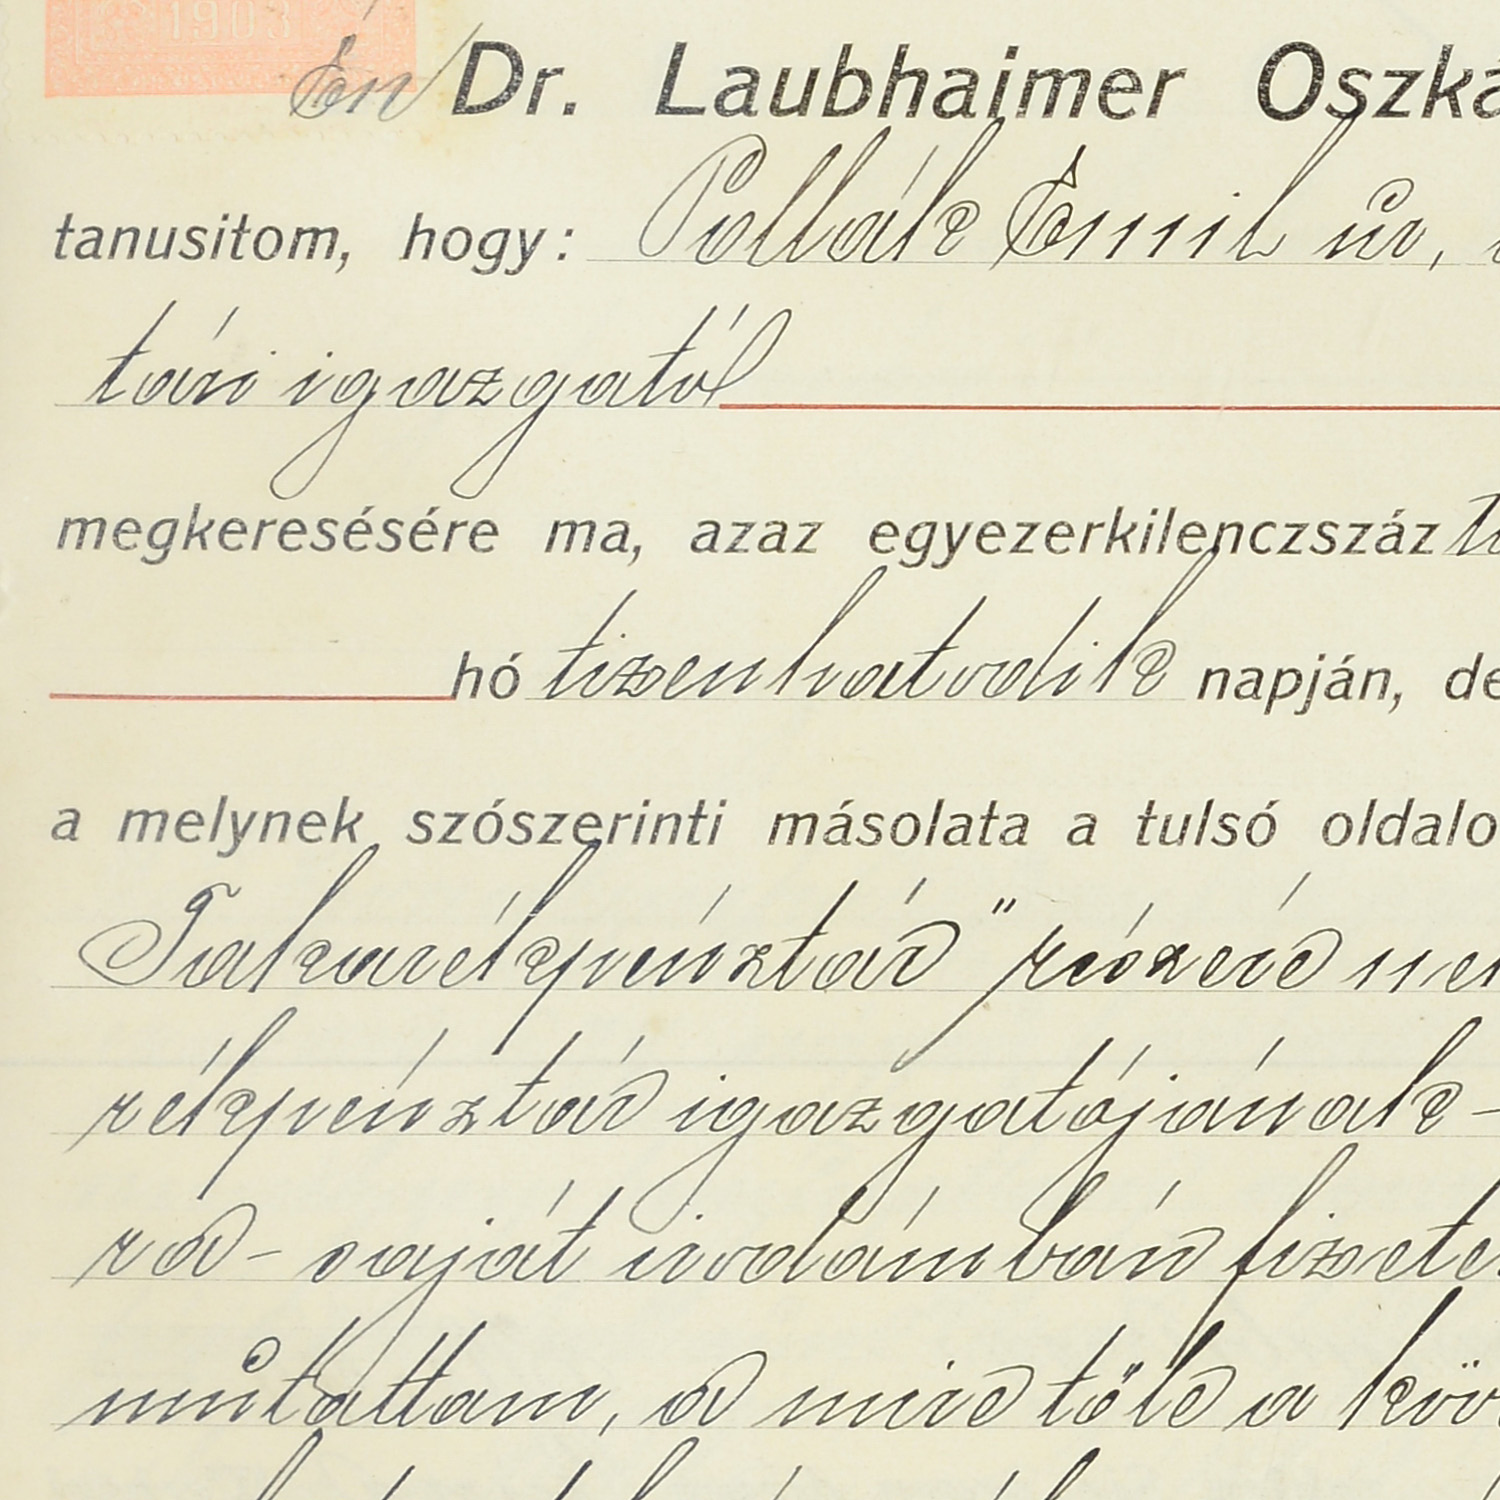 1903
Én Dr. Laubhaimer Oszká
tanusitom, hogy: Pollák Emil úr,
tári igazgatól
megkeresésére ma, azaz egyezerkilenczszáz
hó tizenhatodik napján, de
a melynek szószerinti másolata a tulsó oldalo
Takarékpénztár" részére
rékpénztár igazgatójának-
ra- saját irodámban fizete
mutattam, a mire tőle a köv